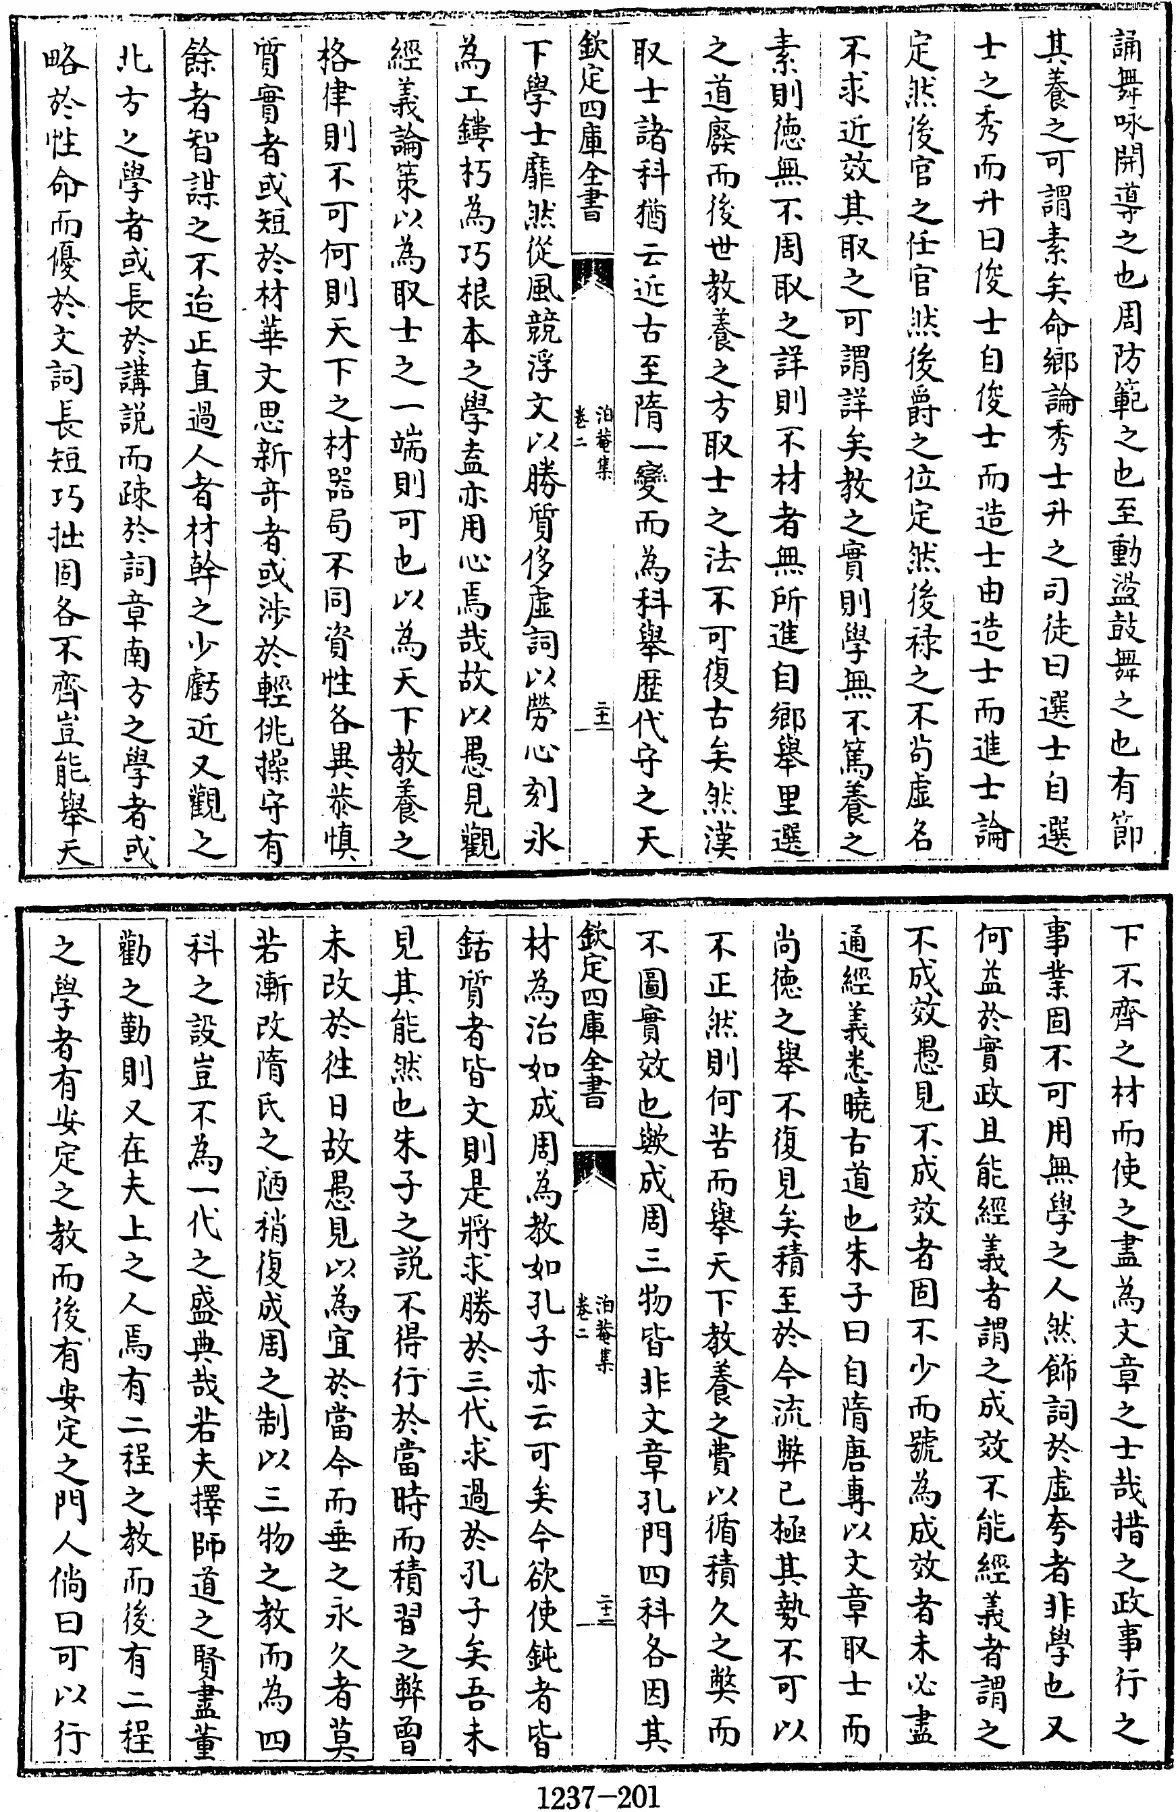 誦舞咏開導之也周防範之也至動盪鼓舞之也有節
其養之可謂素矣命鄉論秀士升之司徒曰選士自選
士之秀而升曰俊士自俊士而造士由造士而進士論
定然後官之任官然後爵之位定然後祿之不茍虛名
不求近效其取之可謂詳矣教之實則學無不篤養之
素則德無不周取之詳則不材者無所進自鄉舉里選
之道廢而後世教養之方取士之法不可復古矣然漢
取士諸科猶云近古至隋一變而為科舉歴代守之天
欽定四庫全書
泊菴集
卷二
二十一
下學士靡然從風競浮文以勝質侈虛詞以勞心刻氷
為工鏤朽為巧根本之學盍亦用心焉哉故以愚見觀
經義論策以為取士之一端則可也以為天下教養之
格律則不可何則天下之材器局不同資性各異恭慎
質實者或短於材華文思新奇者或涉於輕佻操守有
餘者智謀之不逮正直過人者材幹之少虧近又觀之
北方之學者或長於講説而疎於詞章南方之學者或
略於性命而優於文詞長短巧拙固各不齊豈能舉天
下不齊之材而使之盡為文章之士哉措之政事行之
事業固不可用無學之人然飾詞於虛夸者非學也又
何益於實政且能經義者謂之成效不能經義者謂之
不成效愚見不成效者固不少而號為成效者未必盡
通經義悉曉古道也朱子曰自隋唐專以文章取士而
尚德之舉不復見矣積至於今流弊已極其勢不可以
不正然則何苦而舉天下教養之費以循積久之獘而
不圖實效也歟成周三物皆非文章孔門四科各因其
欽定四庫全書
泊菴集
卷二
二十二
材為治如成周為教如孔子亦云可矣今欲使鈍者皆
銛質者皆文則是將求勝於三代求過於孔子矣吾未
見其能然也朱子之説不得行於當時而積習之弊曾
未改於徃日故愚見以為宜於當今而垂之永久者莫
若漸改隋氏之陋稍復成周之制以三物之教而為四
科之設豈不為一代之盛典哉若夫擇師道之賢盡董
勸之勤則又在夫上之人焉有二程之教而後有二程
之學者有安定之教而後有安定之門人倘曰可以行
1237-201